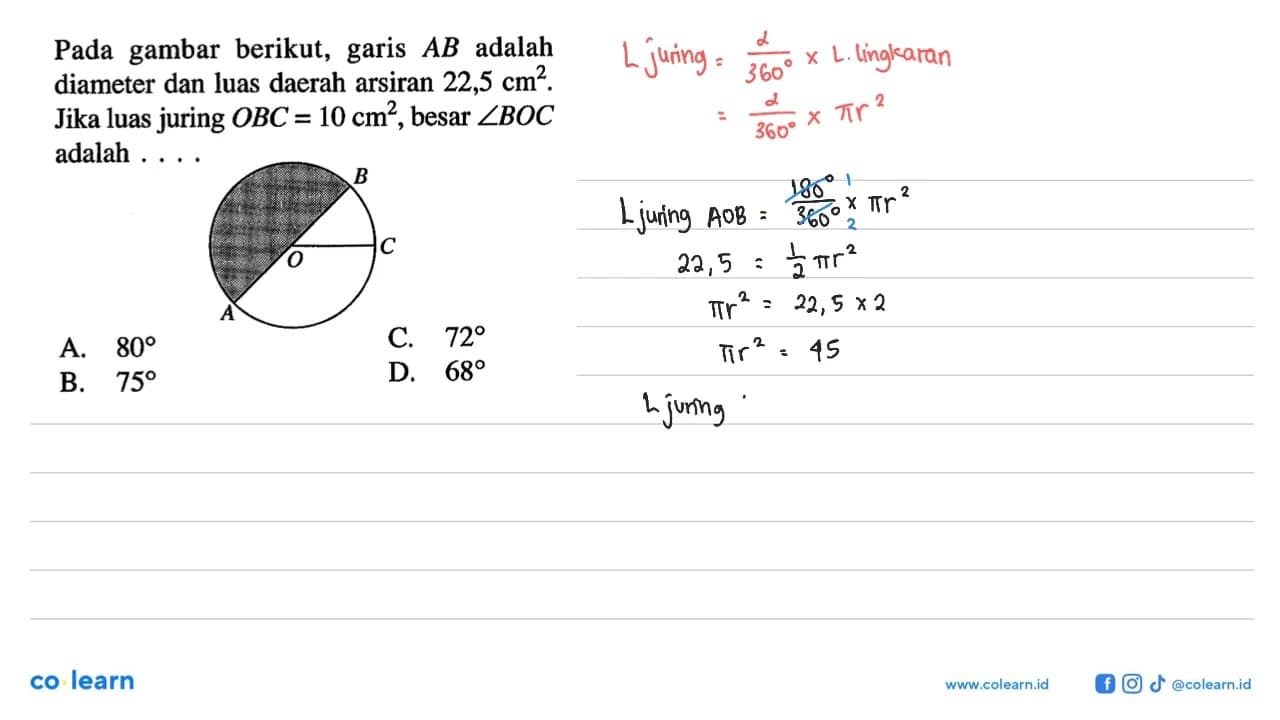 Pada gambar berikut, garis AB adalah
diameter dan luas daerah arsiran 22,5 cm².
Jika luas juring OBC = 10 cm², besar ∠BOC
adalah . . . .
B
O
C
A
A. 80°
B. 75°
C. 72°
D. 68°
L juring = α/360° × L. lingkaran
= α/360° × πr²
L juring AOB = 180° 1/360° 2 × πr²
22,5 = 1/2 πr²
πr² = 22,5 × 2
πr² = 45
L juring
co learn
www.colearn.id
@colearn.id